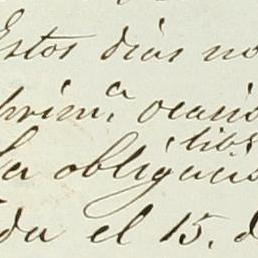 Estos dias no
prim.ª ocasio
libr
La obligacio
da el 15. d